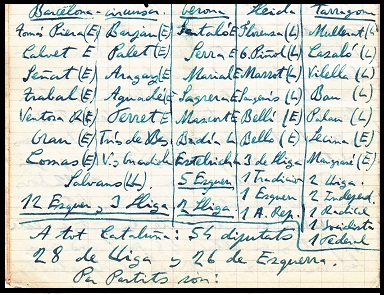 Barcelona-circunscr. Gerona Lleida Tarragona
Tomás Piera (E) Barjau (E) Santaló E Florensa (L) Mullerat (L)
Calvet E Palet (E) Serra E G. Piñol (L) Casabó (L)
Señat (E) Aragay (E) Marial E Massot (L) Vilella (L)
Trabal (E) Aguadé (E) Sagrera E Sangenís (L) Bau (L)
Ventosa R (E) Ferret (E) Mascort E Bellí (E) Palau (L)
Grau (E) Trías de Bes Badía L Bello (E) Lecina (E)
Comas (E) Vis. Mirachols Estelrich 3 de Lliga Mangrané (E)
Salvans (L). 5 Esquerr. 1 Tradicio 2 Lliga.
12 Esquer y 3 Lliga 2 Lliga. 1 Esquerr 2 Independ.
1 A. Rep. 1 Radical
A tot Cataluña: 54 diputats 1 Socialista
28 de Lliga y 26 de Ezquerra. 1 Federal
Per Partits son: